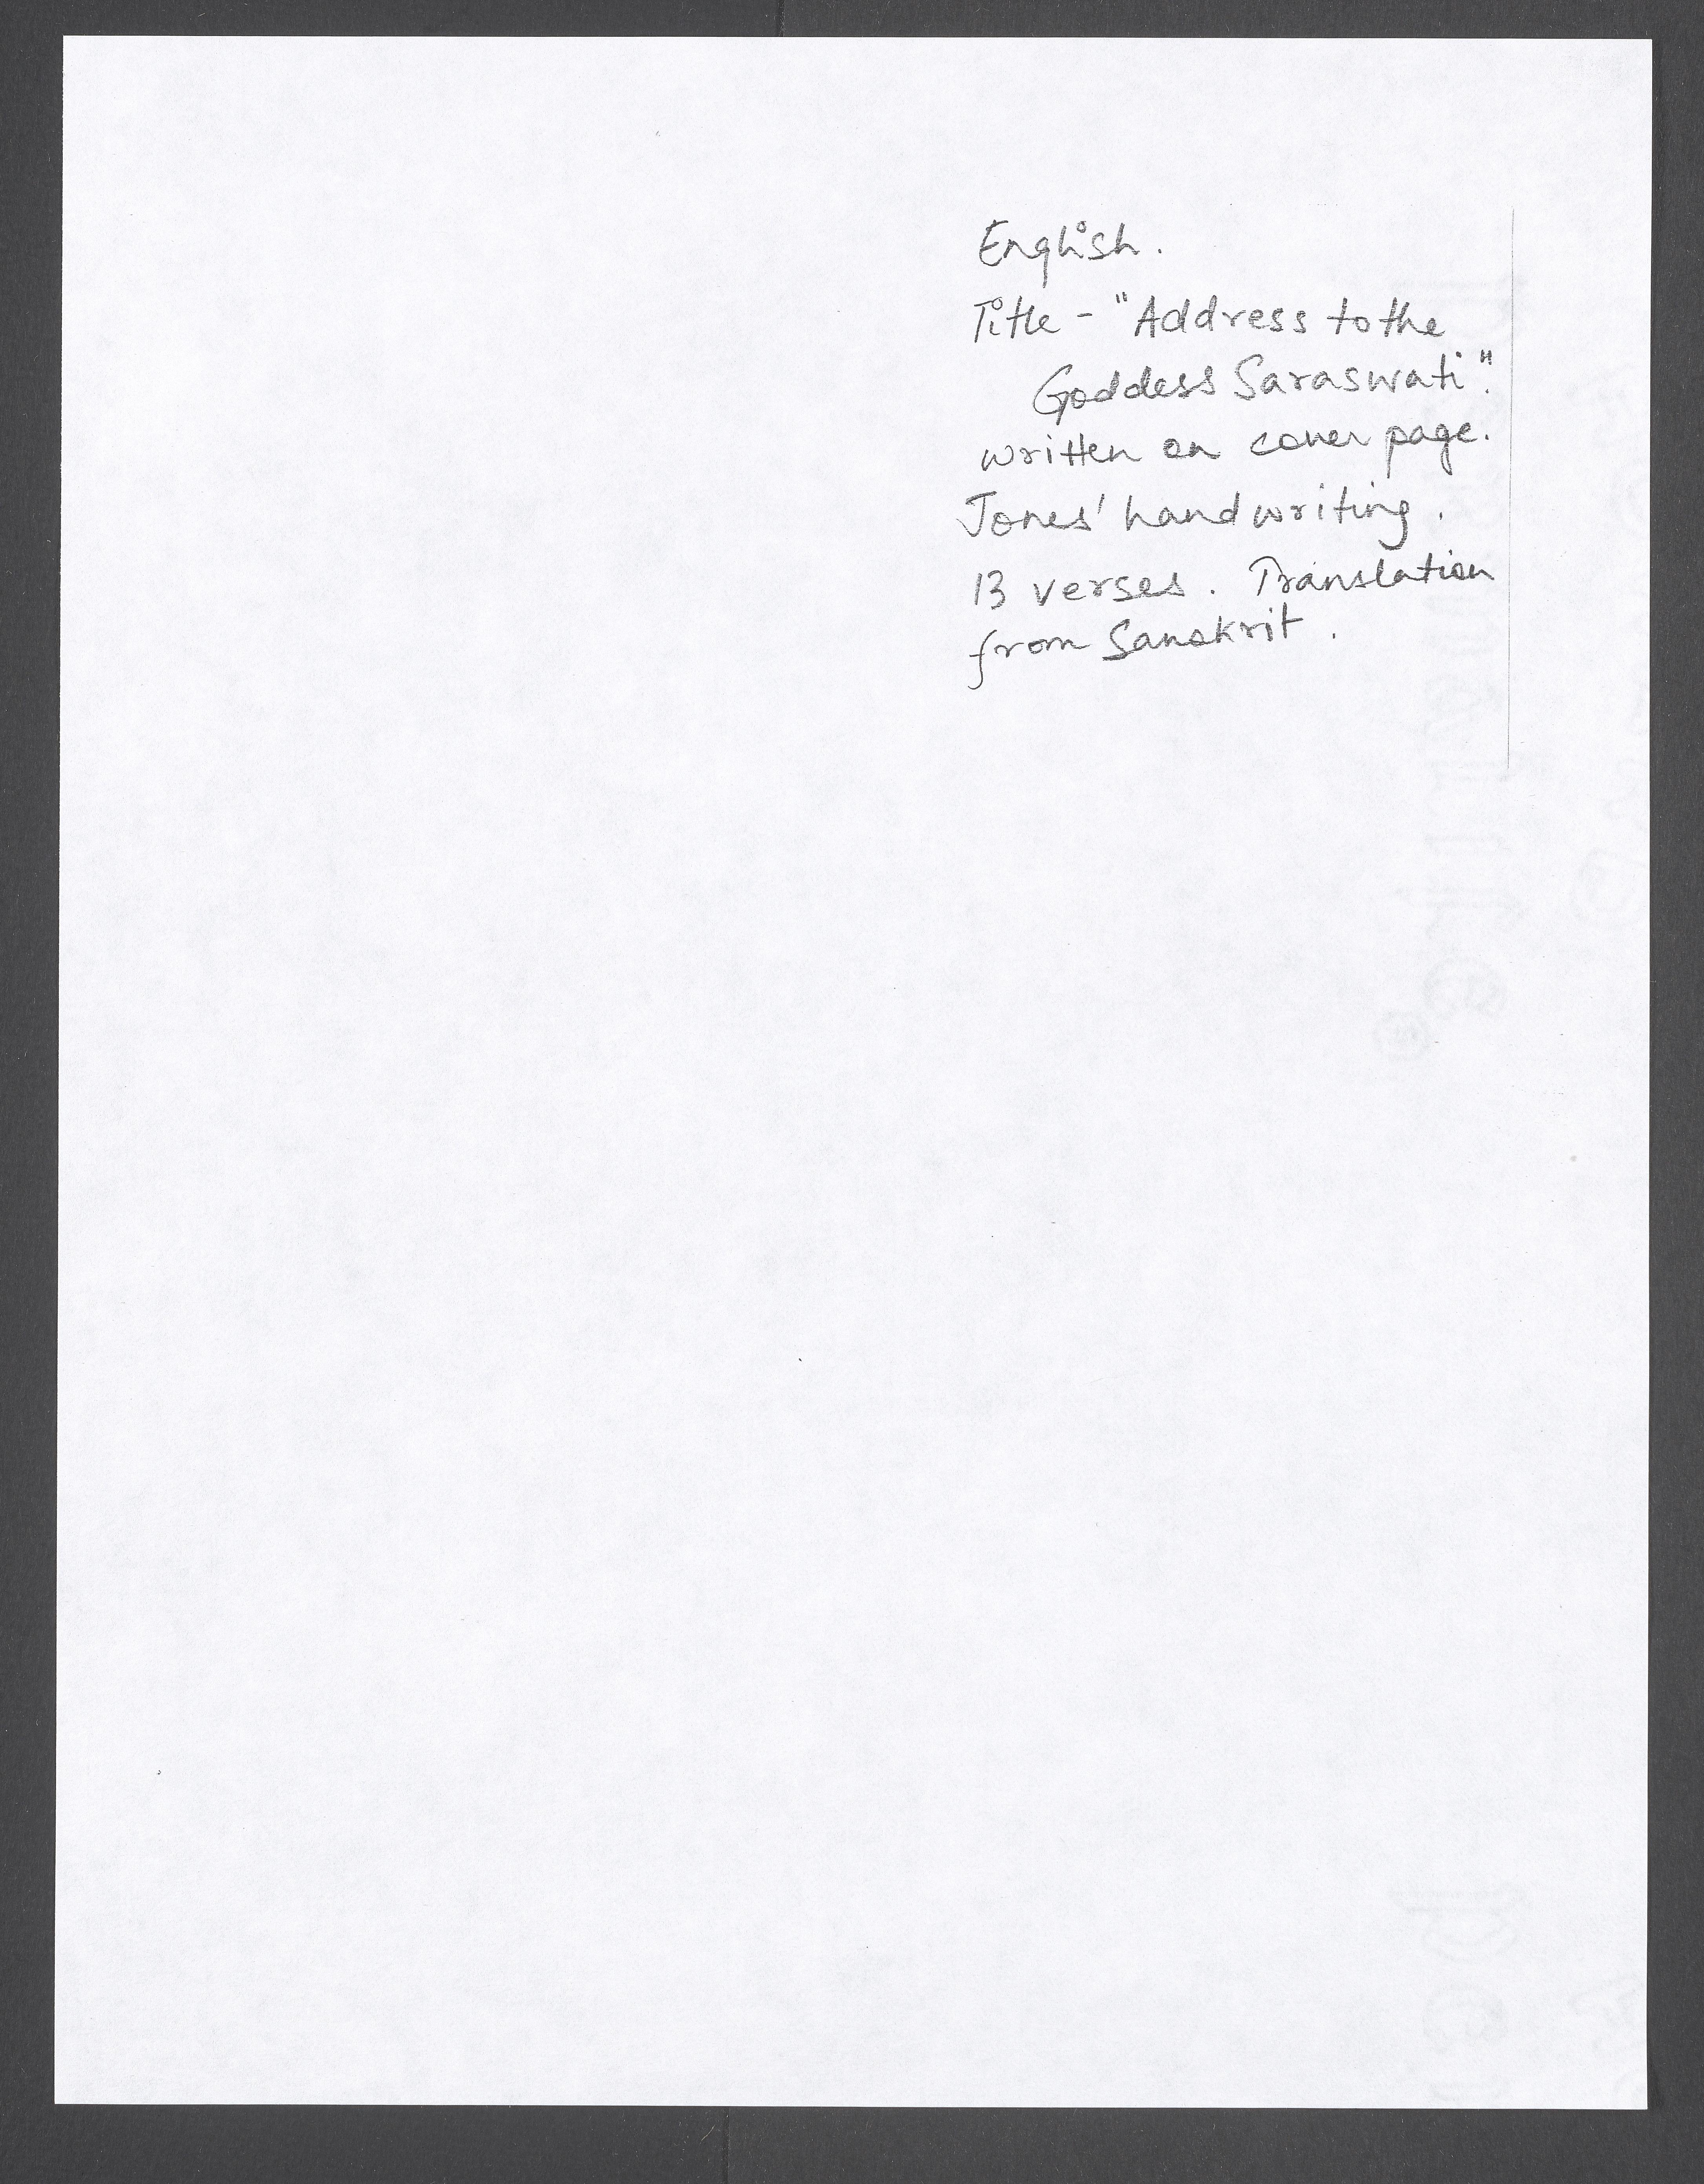 English.
Title - "Address to the
Goddess Saraswati".
written on cover page.
Jones' handwriting.
13 verses. Translation
from Sanskrit.